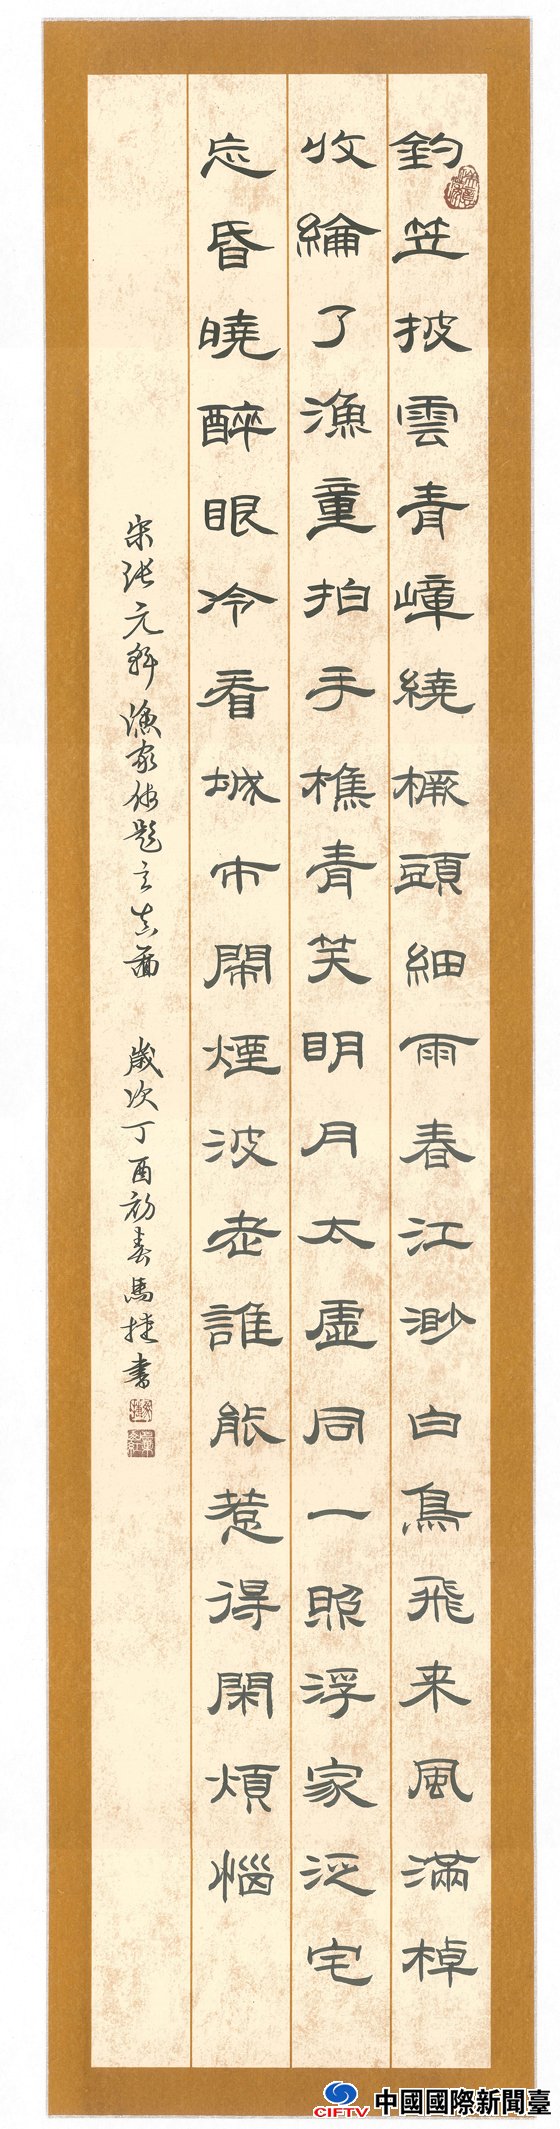 釣笠披雲青嶂繞橛頭細雨春江渺白鳥飛来風滿棹
收綸了漁童拍手樵青笑明月太虛同一照浮家泛宅
忘昏曉醉眼冷看城市閙煙波老誰能惹得閑煩惱
宋張元幹漁家傲題玄真圖 歲次丁酉初春馬捷書
CIFTV 中國國際新聞臺